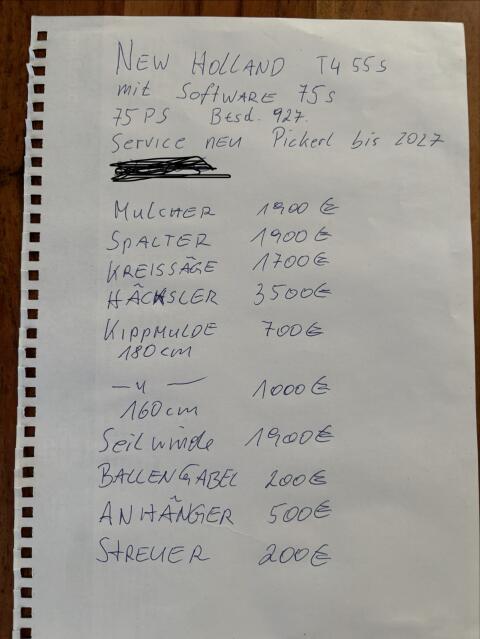 NEW HOLLAND T4 55s
mit SOFTWARE 75s
75 PS Btsd. 927.
Service neu Pickerl bis 2027
MULCHER 1900 €
SPALTER 1900€
KREISSÄGE 1700€
HÄCKSLER 3500€
KIPPMULDE 700€
180cm
—〃— 1000€
160cm
Seilwinde 1900€
BALLENGABEL 200€
ANHÄNGER 500€
STREUER 200€